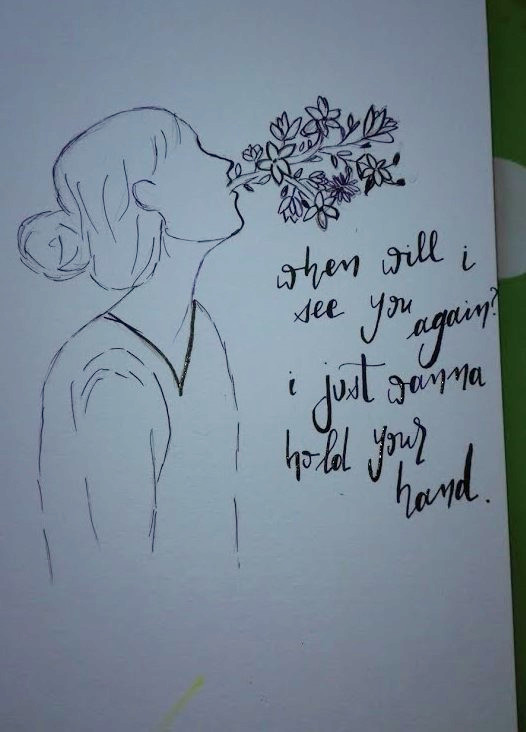 when will i
see you
again?
i just wanna
hold your
hand.